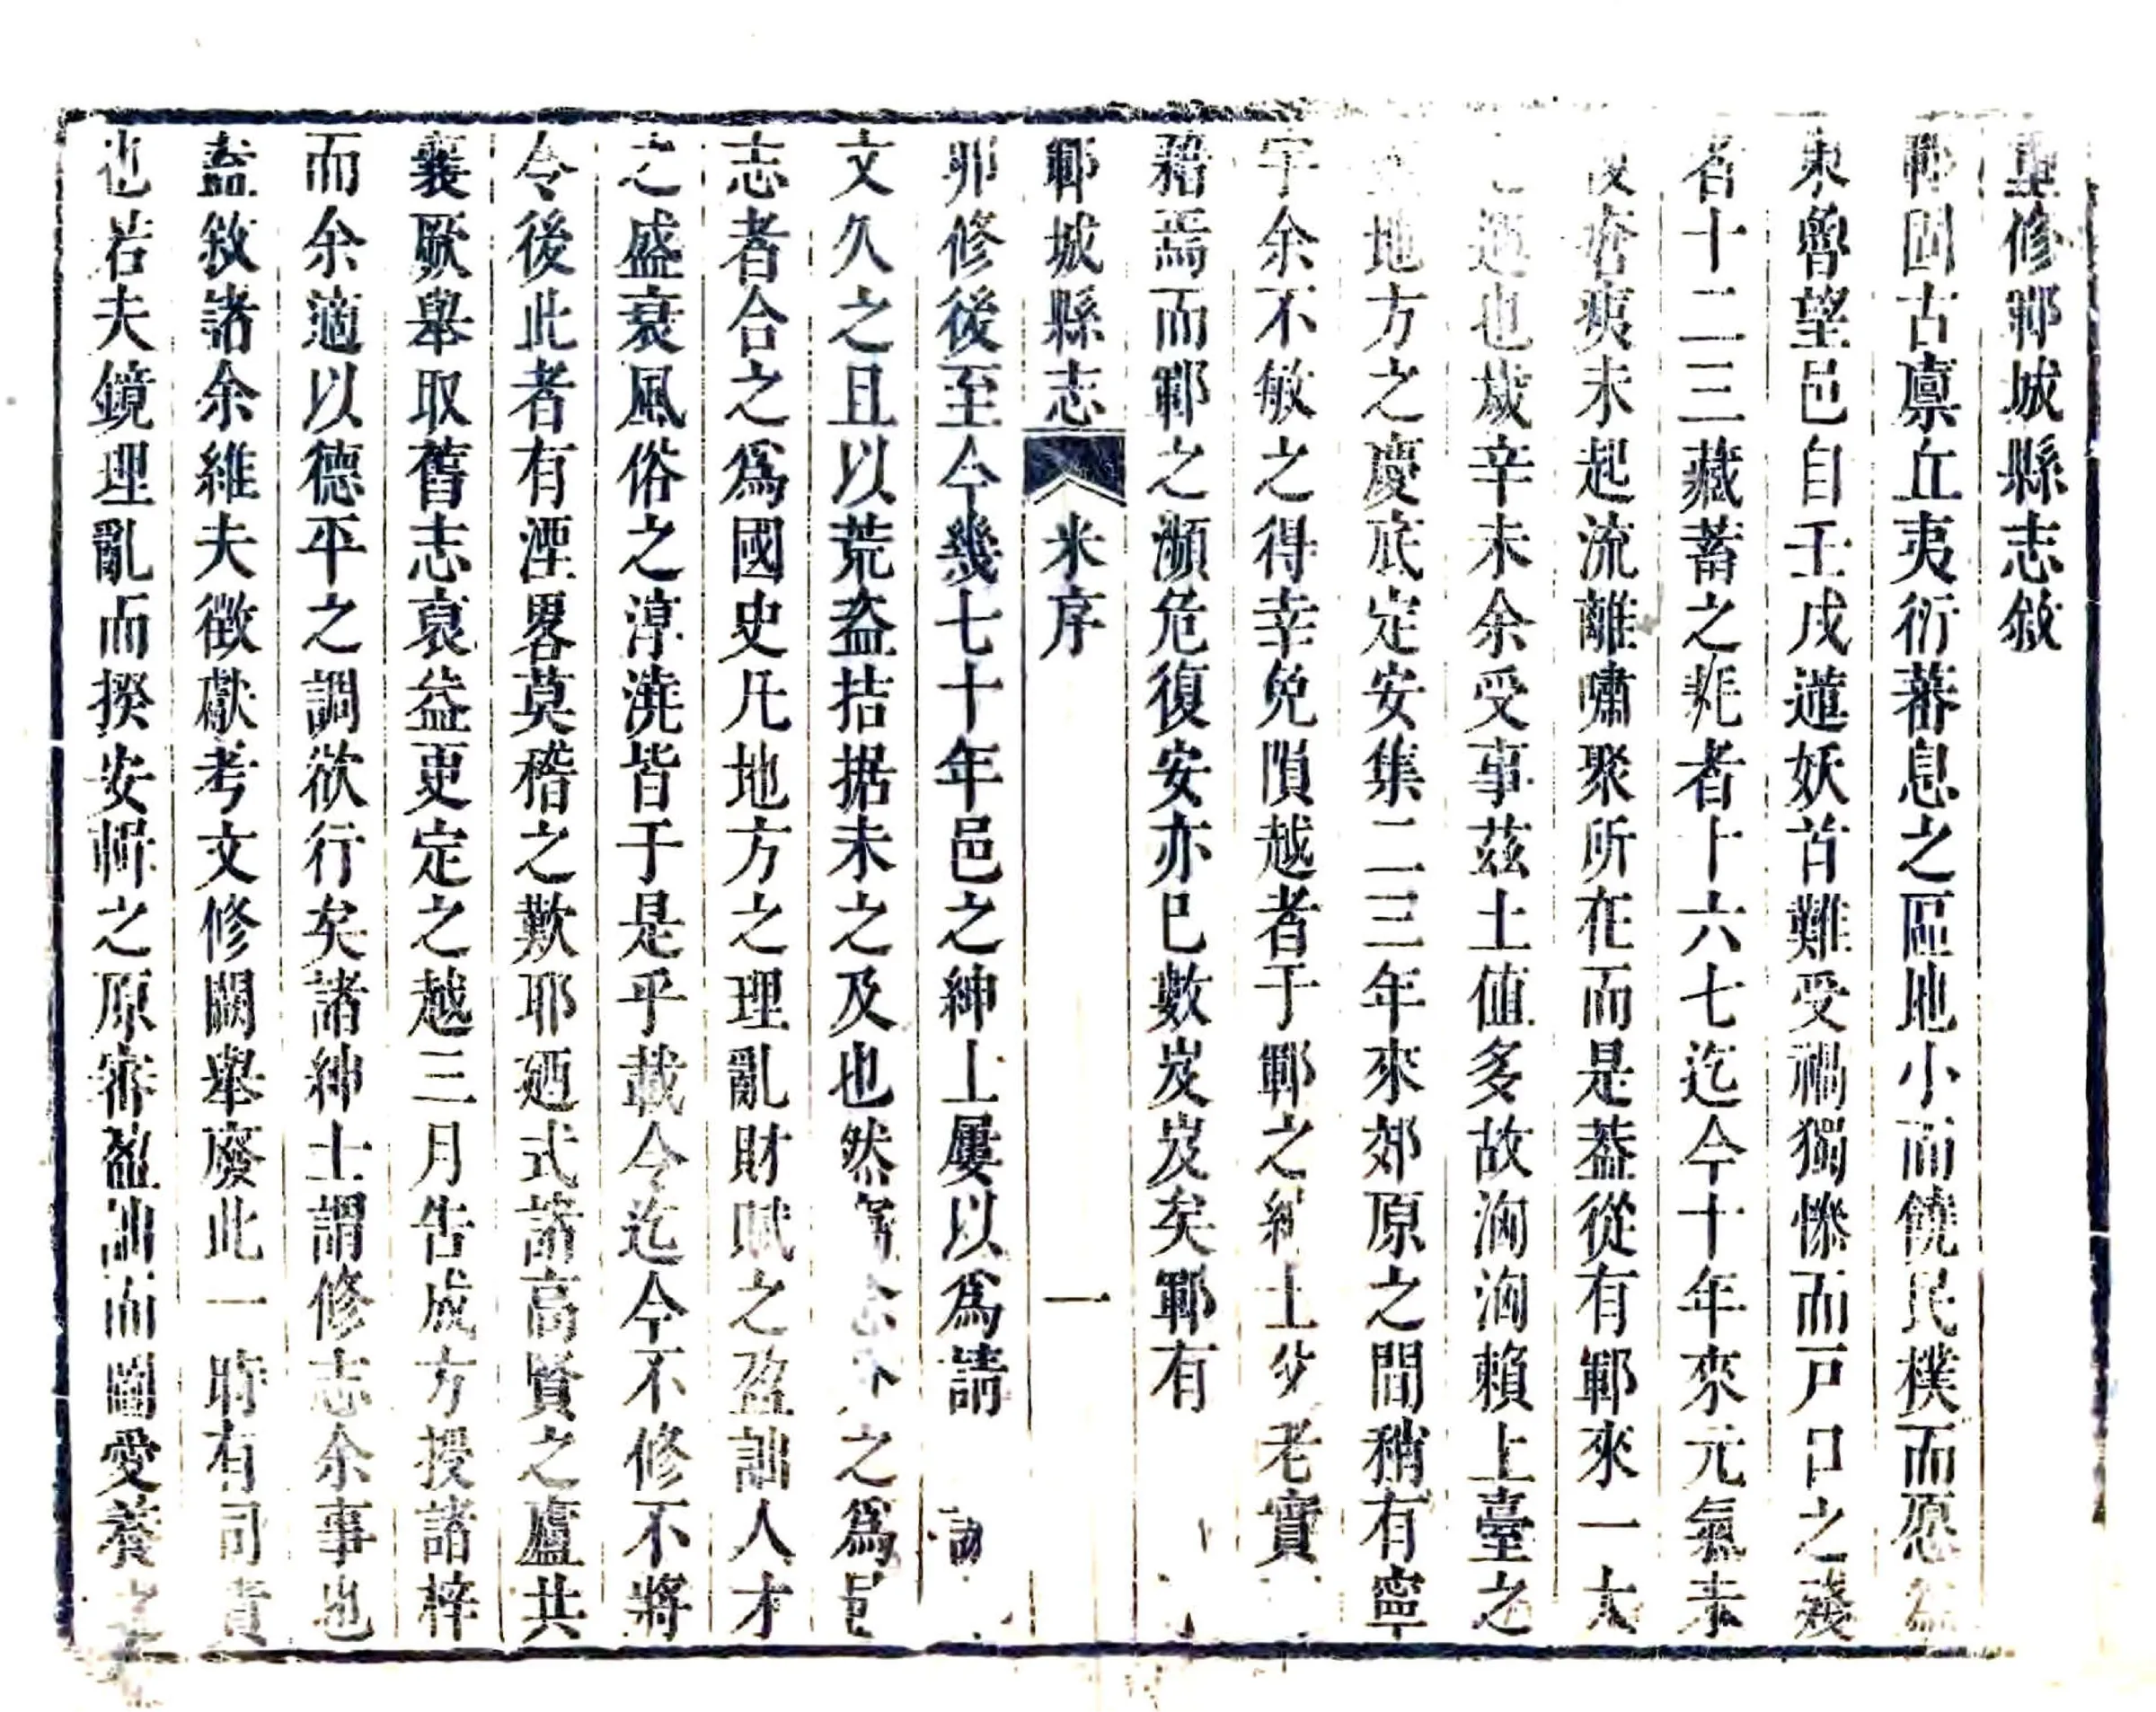 重修鄆城縣志敘
鄆固古廩丘夷衍蕃息之區地小而饒民樸而愿
東魯望邑自壬戌蓮妖首難受禍獨慘而戸口之殘
者十二三藏蓄之耗者十六七迄今十年來元氣未
夷未起流離嘯聚所在而是葢從有鄆來一大
也歲辛未余受事茲土値多故洶洶賴上臺之
地方之慶底定安集二三年來郊原之間稍有寧
宇余不敏之得幸免隕越者于鄆之紳士父老實
藉焉而鄆之瀕危復安亦已數岌岌矣鄆有
鄆城縣志 米序 一
卯修後至今幾七十年邑之紳士屢以爲請
文久之且以荒盗拮据未之及也然之爲邑
志者合之爲國史凡地方之理亂財賦之盈詘人才
之盛衰風俗之淳澆皆于是乎載今迄今不修不將
令後此者有湮畧莫稽之歎耶廼式諸高賢之廬共
襄厥舉取舊志裒益更定之越三月告成方授諸梓
而余適以德平之調欲行矣諸紳士謂修志余事也
盍敘諸余維夫徵獻考文修闕舉廢此一時有司責
也若夫鏡理亂而揆安輯之原審盈詘而圖愛養之